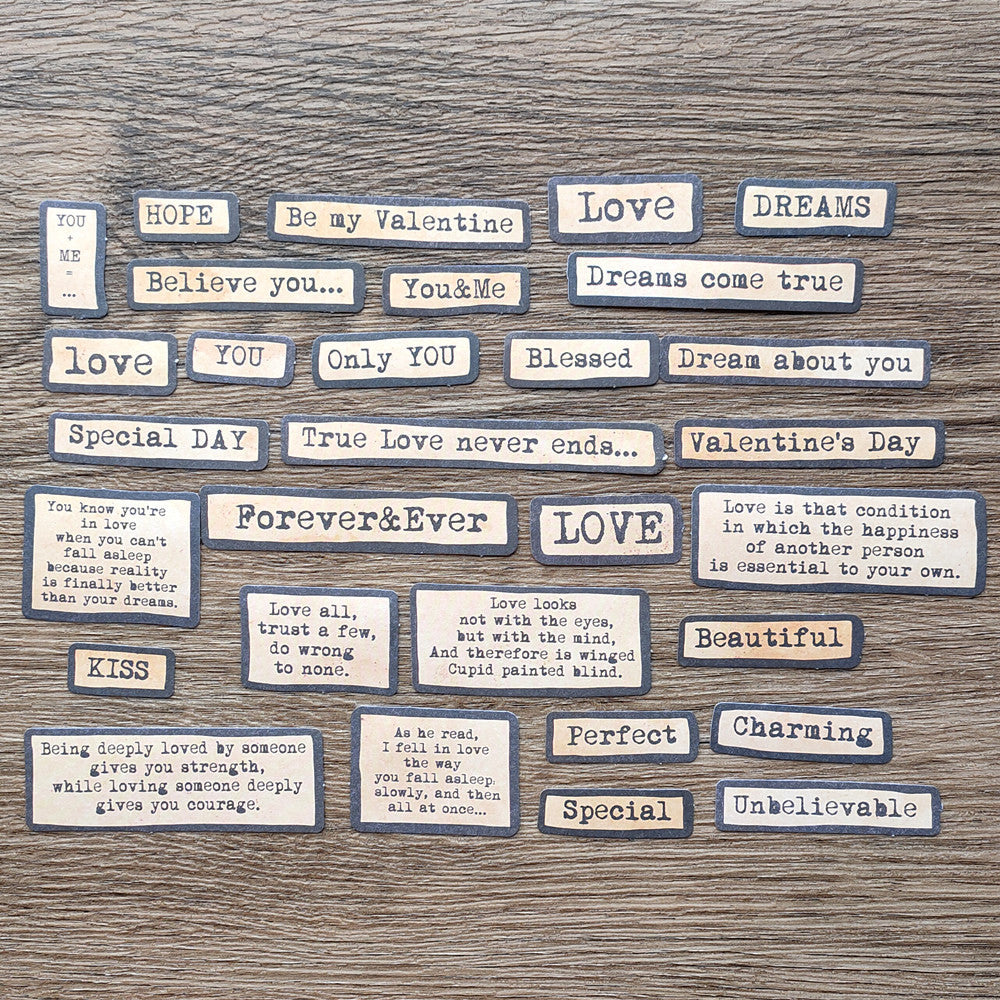 YOU
+
ME
=
...
HOPE
Be my Valentine
Love
DREAMS
Believe you...
You&Me
Dreams come true
love
YOU
Only YOU
Blessed
Dream about you
Special DAY
True Love never ends...
Valentine's Day
You know you're
in love
when you can't
fall asleep
because reality
is finally better
than your dreams.
Forever&Ever
LOVE
Love is that condition
in which the happiness
of another person
is essential to your own.
KISS
Love all,
trust a few,
do wrong
to none.
Love looks
not with the eyes,
but with the mind,
And therefore is winged
Cupid painted blind.
Beautiful
Being deeply loved by someone
gives you strength,
while loving someone deeply
gives you courage.
As he read,
I fell in love
the way
you fall asleep:
slowly, and then
all at once...
Perfect
Charming
Special
Unbelievable